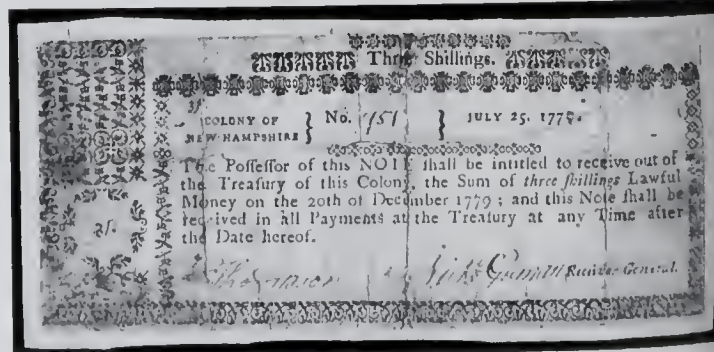 Three Shillings.
COLONY OF NEW-HAMPSHIRE } No. 751 } JULY 25. 1775.
The Poſſeſſor of this NOTE ſhall be intitled to receive out of
the Treaſury of this Colony, the Sum of three ſhillings Lawful
Money on the 20th of December 1779 ; and this Note ſhall be
received in all Payments at the Treaſury at any Time after
the Date hereof.
Thompson Nichs Gilman Receiver General.